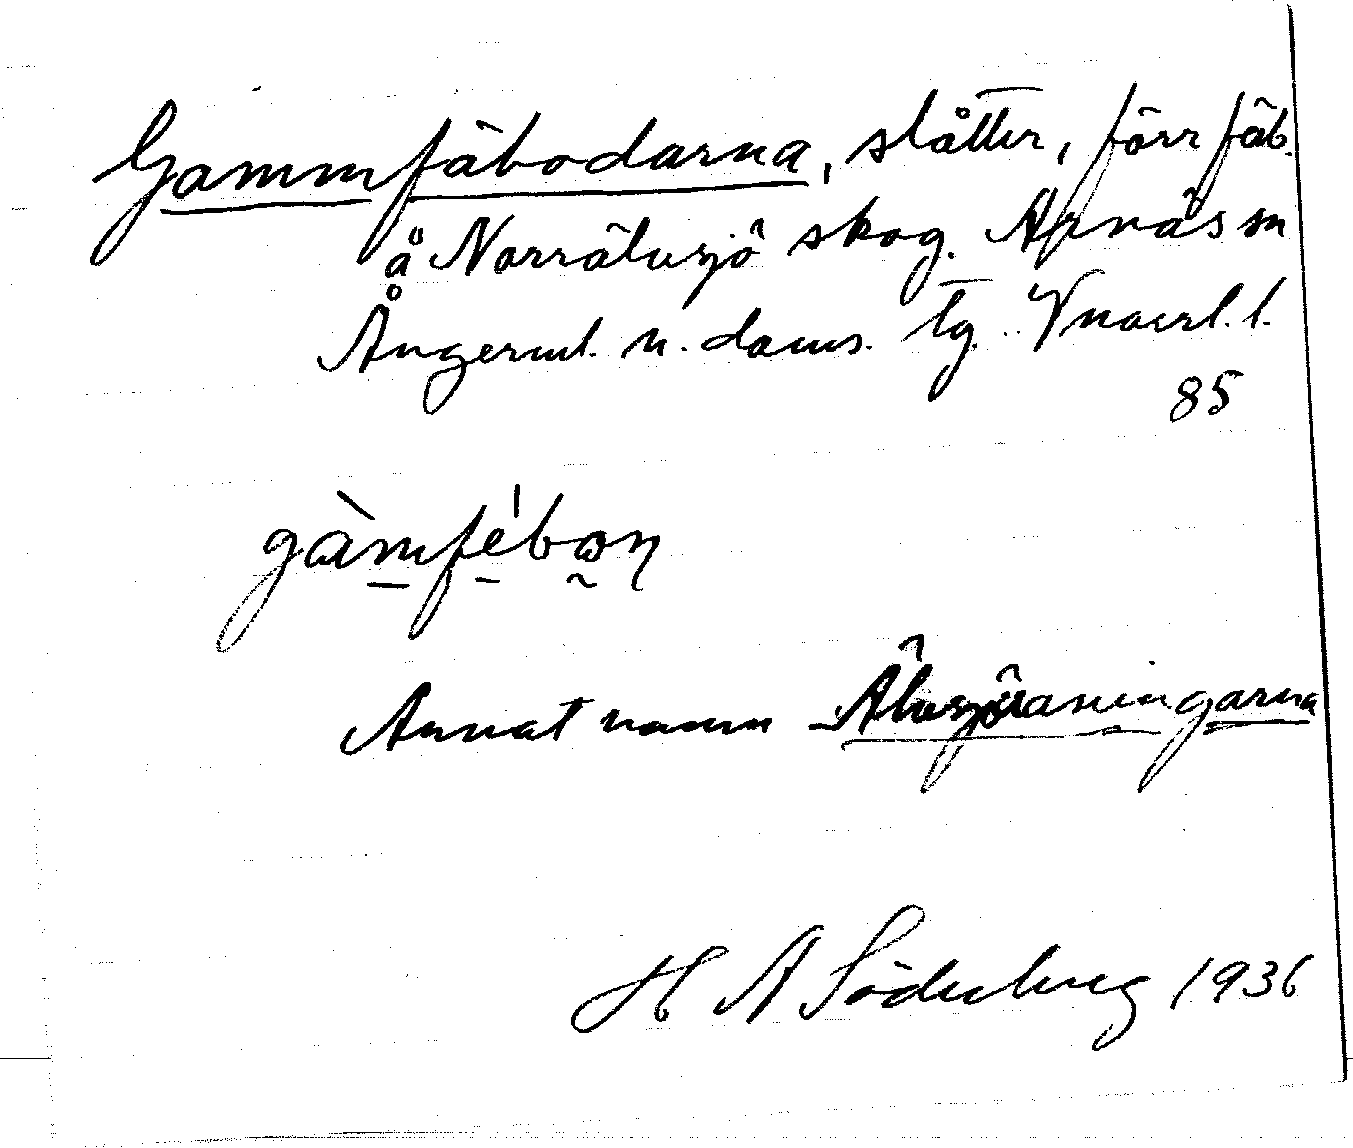 Gammfäbodarna, slåtter, förr fäb.
å Norrälvsjö skog. Arnäs sn
Ångerml. n. doms. tg. Vnorrl. l.
85
gàmfébɷn
Annat namn Älvsjörasningarna
H A Söderberg 1936